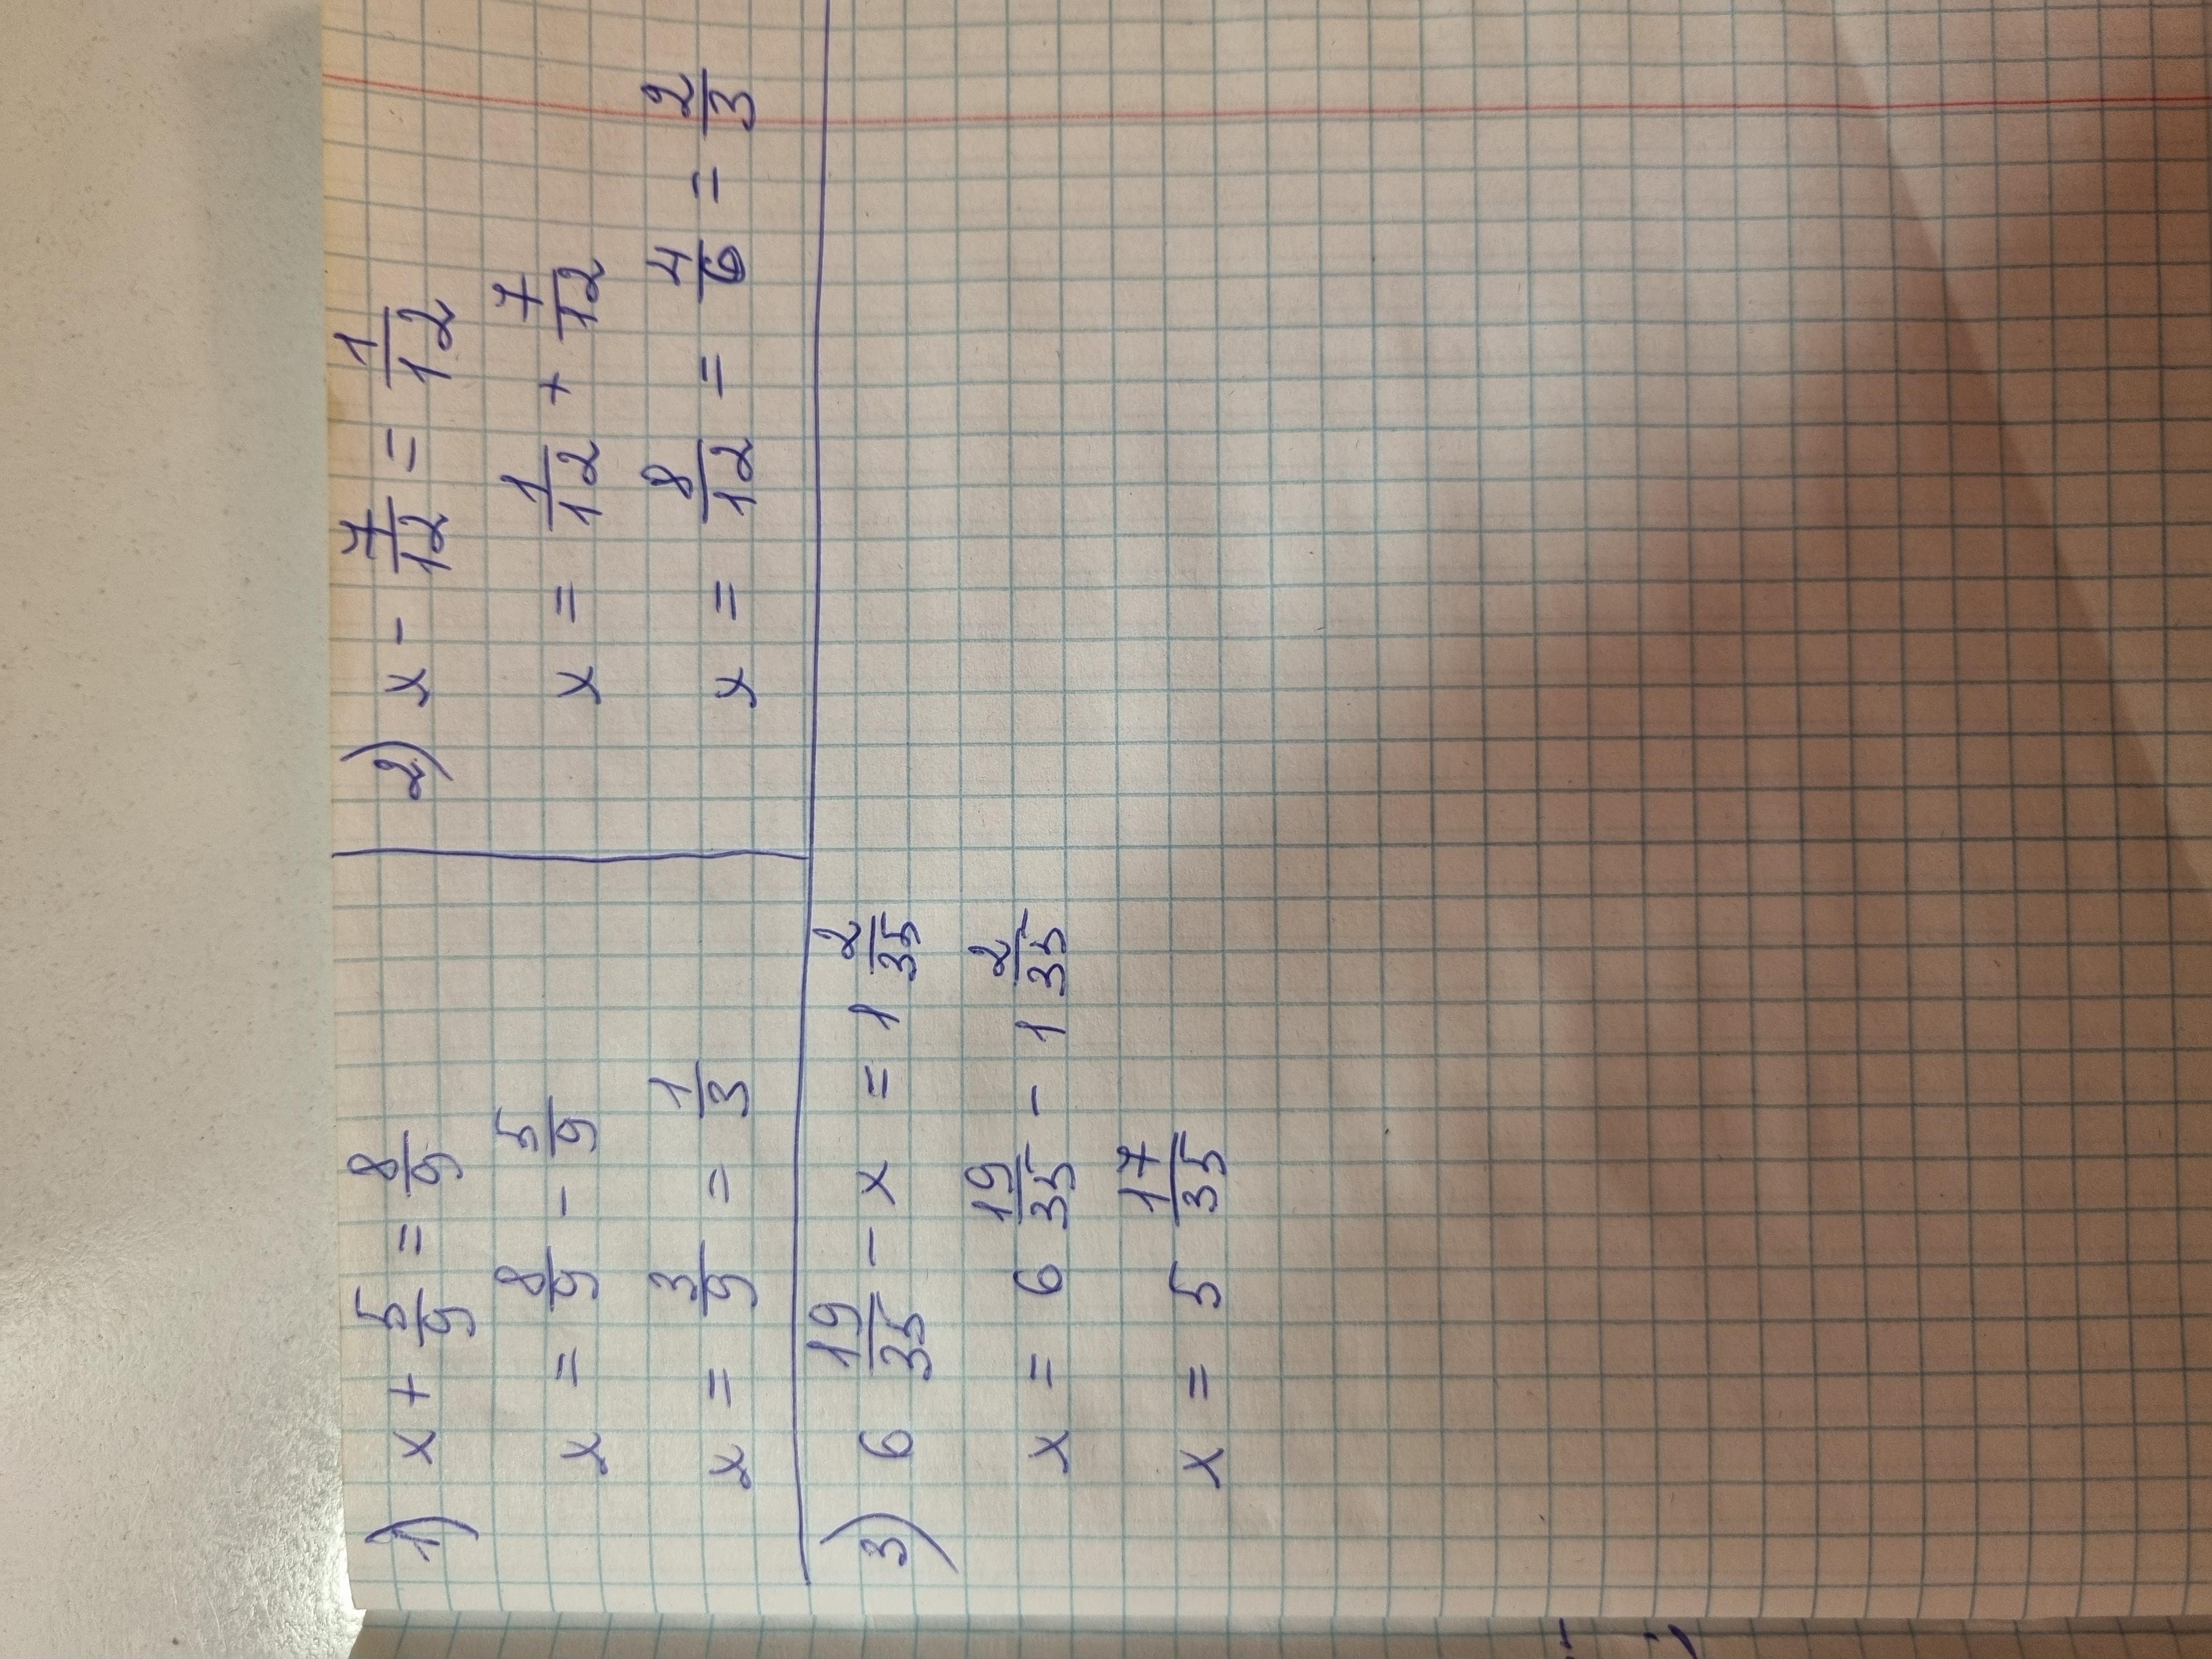 1) x + 5/9 = 8/9
x = 8/9 - 5/9
x = 3/9 = 1/3
2) x - 7/12 = 1/12
x = 1/12 + 7/12
x = 8/12 = 4/6 = 2/3
3) 6 19/35 - x = 1 2/35
x = 6 19/35 - 1 2/35
x = 5 17/35